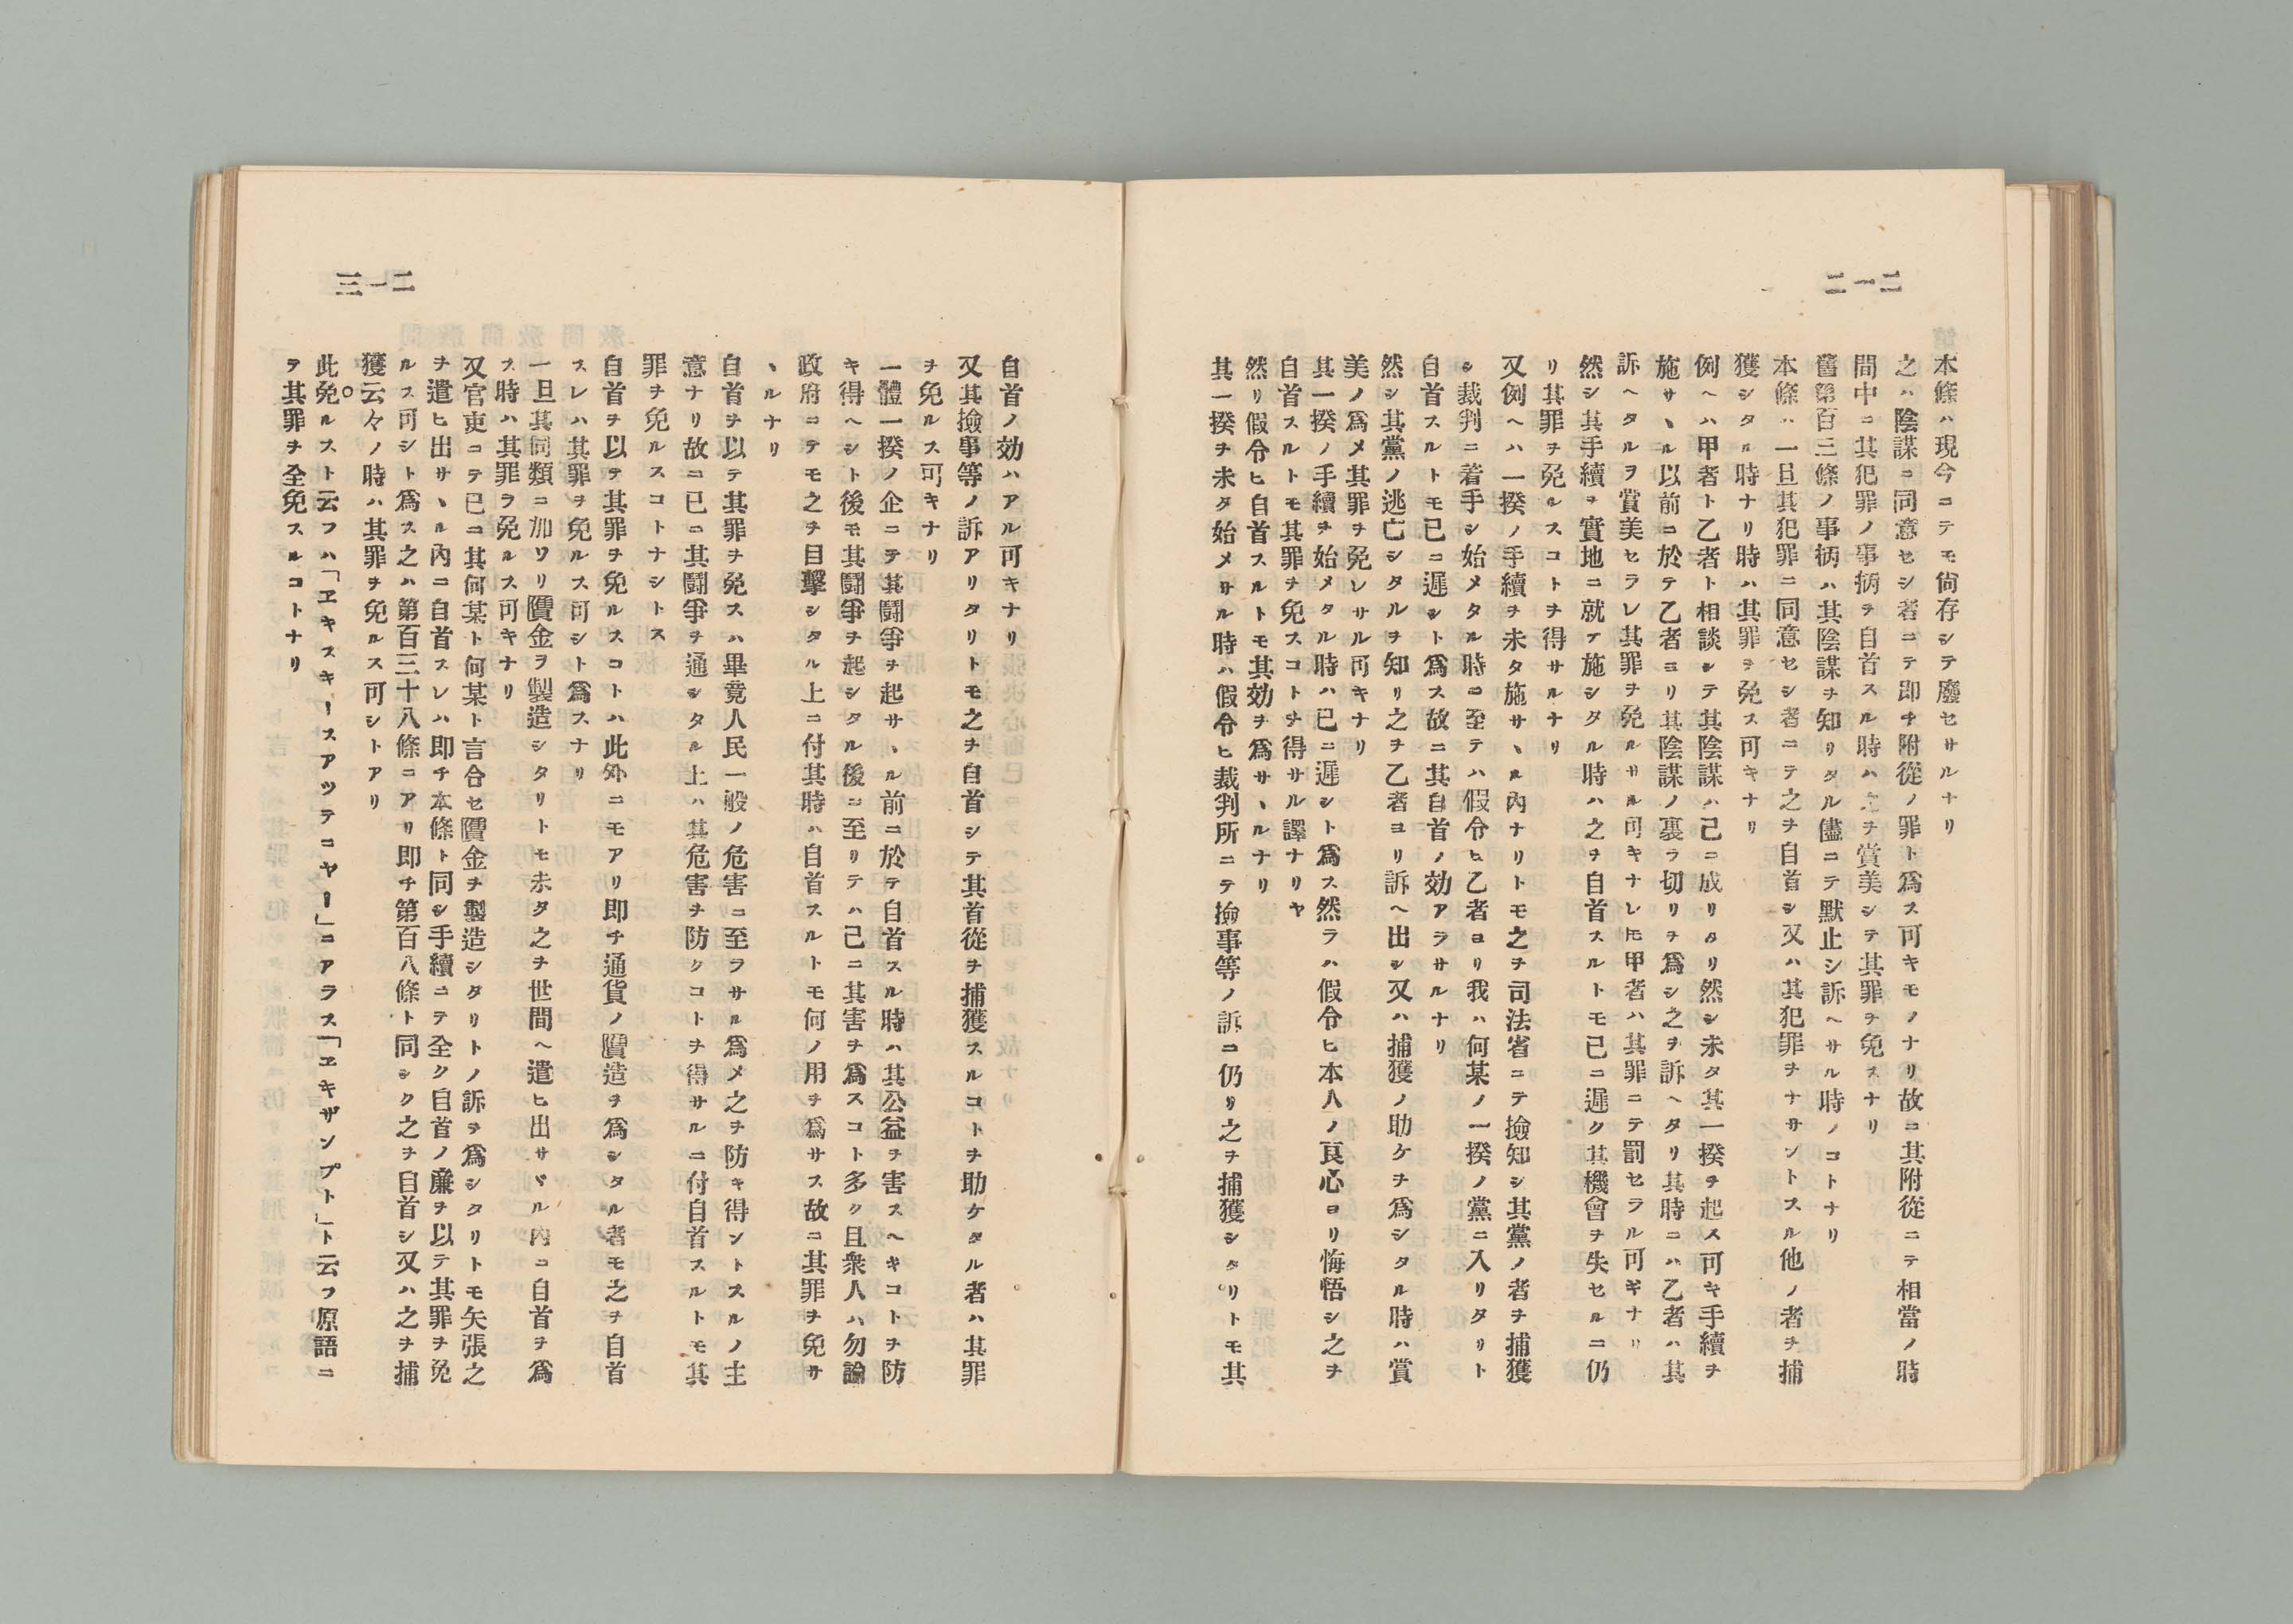 二一二
本條ハ現今ニテモ尙存シテ廢セサルナリ
之ハ陰謀ニ同意セシ者ニテ即チ附從ノ罪ト爲ス可キモノナリ故ニ其附從ニテ相當ノ時
間中ニ其犯罪ノ事柄ヲ自首スル時ハ之ヲ賞美シテ其罪ヲ免スナリ
舊第百三條ノ事柄ハ其陰謀ヲ知リタル儘ニテ默止シ訴ヘサル時ノコトナリ
本條ハ一旦其犯罪ニ同意セシ者ニテ之ヲ自首シ又ハ其犯罪ヲナサントスル他ノ者ヲ捕
獲シタル時ナリ時ハ其罪ヲ免ス可キナリ
例ヘハ甲者ト乙者ト相談シテ其陰謀ハ己ニ成リタリ然シ未タ其一揆ヲ起ス可キ手續ヲ
施サヽル以前ニ於テ乙者ヨリ其陰謀ノ裏ラ切リヲ爲シ之ヲ訴ヘタリ其時ニハ乙者ハ其
訴ヘタルヲ賞美セラレ其罪ヲ免ルサル可キナレ𪜈甲者ハ其罪ニテ罰セラル可ギナリ
然シ其手續ヲ實地ニ就テ施シタル時ハ之ヲ自首スルトモ已ニ遲ク其機會ヲ失セルニ仍
リ其罪ヲ免ルスコトヲ得サルナリ
又例ヘハ一揆ノ手續ヲ未タ施サヽル內ナリトモ之ヲ司法省ニテ撿知シ其黨ノ者ヲ捕獲
シ裁判ニ着手シ始メタル時ニ至テハ假令ヒ乙者ヨリ我ハ何某ノ一揆ノ黨ニ入リタリト
自首スルトモ已ニ遲シト爲ス故ニ其自首ノ効アラサルナリ
然シ其黨ノ逃亡シタルヲ知リ之ヲ乙者ヨリ訴ヘ出シ又ハ捕獲ノ助ケヲ爲シタル時ハ賞
美ノ爲メ其罪ヲ免レサル可キナリ
其一揆ノ手續ヲ始メタル時ハ已ニ遲シト爲ス然ラハ假令ヒ本人ノ良心ヨリ悔悟シ之ヲ
自首スルトモ其罪ヲ免スコトヲ得サル譯ナリヤ
然リ假令ヒ自首スルトモ其効ヲ爲サヽルナリ
其一揆ヲ未タ始メサル時ハ假令ヒ裁判所ニテ撿事等ノ訴ニ仍リ之ヲ捕獲シタリトモ其
二一三
自首ノ効ハアル可キナリ
又其撿事等ノ訴アリタリトモ之ヲ自首シテ其首從ヲ捕獲スルコトヲ助ケタル者ハ其罪
ヲ免ルス可キナリ
一體一揆ノ企ニテ其鬪爭ヲ起サヽル前ニ於テ自首スル時ハ其公益ヲ害スヘキコトヲ防
キ得ヘシト後モ其鬪爭ヲ起シタル後ニ至リテハ己ニ其害ヲ爲スコト多ク且衆人ハ勿論
政府ニテモ之ヲ目擊シタル上ニ付其時ハ自首スルトモ何ノ用ヲ爲サス故ニ其罪ヲ免サ
ヽルナリ
自首ヲ以テ其罪ヲ免スハ畢竟人民一般ノ危害ニ至ヲサル爲メ之ヲ防キ得ントスルノ主
意ナリ故ニ已ニ其鬪爭ヲ通シタル上ハ其危害ヲ防クコトヲ得サルニ付自首スルトモ其
罪ヲ免ルスコトナシトス
自首ヲ以テ其罪ヲ免ルスコトハ此外ニモアリ即チ通貨ノ贋造ヲ爲シタル者モ之ヲ自首
スレハ其罪ヲ免ルス可シト爲スナリ
一旦其同類ニ加ワリ贋金ヲ製造シタリトモ未タ之ヲ世間ヘ遣ヒ出サヾル內ニ自首ヲ爲
ス時ハ其罪ヲ免ルス可キナリ
又官吏ニテ已ニ其何某ト何某ト言合セ贋金ヲ製造シタリトノ訴ヲ爲シタリトモ矢張之
ヲ遣ヒ出サヽル內ニ自首スレハ即チ本條ト同シ手續ニテ全ク自首ノ廉ヲ以テ其罪ヲ免
ルス可シト爲ス之ハ第百三十八條ニアリ即チ第百八條ト同シク之ヲ自首シ又ハ之ヲ捕
獲云々ノ時ハ其罪ヲ免ルス可シトアリ
此免ルスト云フハ「ヱキスキースアツテコヤー」ニアラス「ヱキザンプト」ト云フ原語ニ
テ其罪ヲ全免スルコトナリ